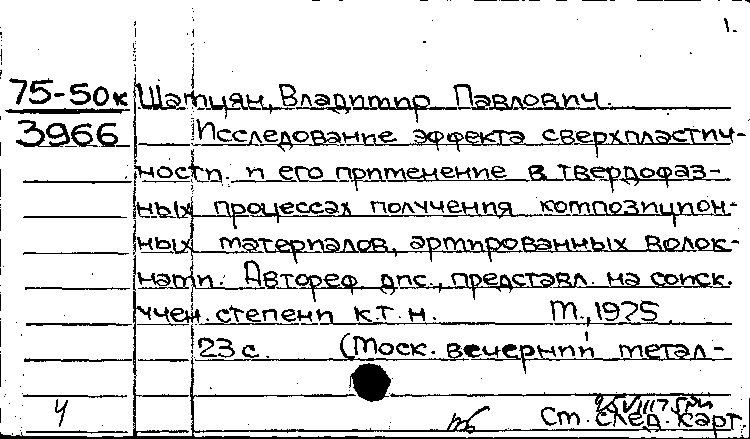 1.
75-50к Шатцян, Владимир Павлович.
3966 Исследование эффекта сверхпластич-
ности и его применение в твердофаз-
ных процессах получения композицион-
ных материалов, армированных волок-
нами. Автореф. дис., представл. на соиск.
учен. степени к.т.н. М., 1975.
23 с. (Моск. вечерний метал-
Ч
См. след. карт